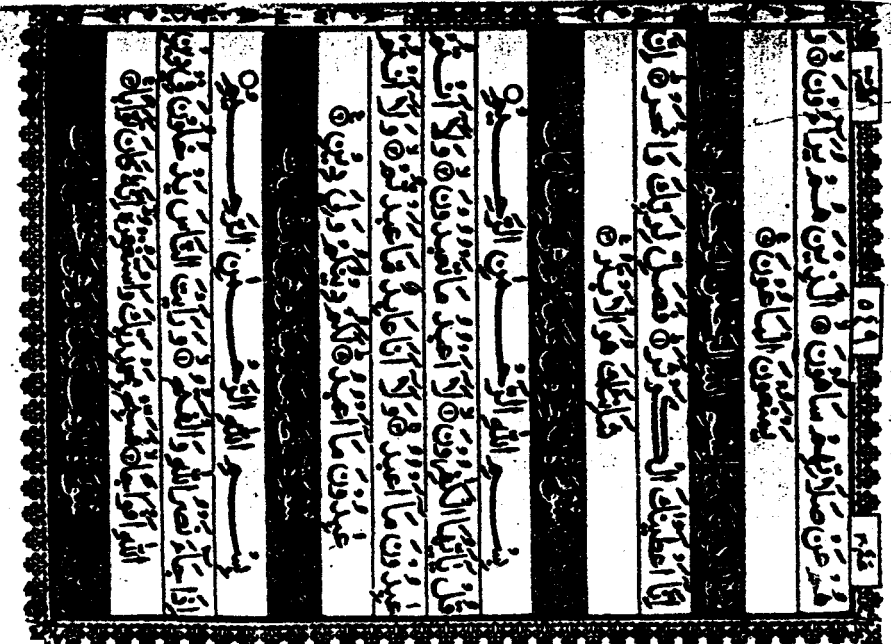 ٥٤٩
هُمْ عَنْ صَلَاتِهِمْ سَاهُونَ ۝ الَّذِينَ هُمْ يُرَاءُونَ ۝ وَ
يَمْنَعُونَ الْمَاعُونَ ۝
إِنَّا أَعْطَيْنٰكَ الْكَوْثَرَ ۝ فَصَلِّ لِرَبِّكَ وَانْحَرْ ۝ إِنَّ
شَانِئَكَ هُوَ الْأَبْتَرُ ۝
بِسْمِ اللّٰهِ الرَّحْمٰنِ الرَّحِيمِ
قُلْ يٰأَيُّهَا الْكٰفِرُونَ ۝ لَا أَعْبُدُ مَا تَعْبُدُونَ ۝ وَلَا أَنْتُمْ
عٰبِدُونَ مَا أَعْبُدُ ۝ وَلَا أَنَا عَابِدٌ مَا عَبَدْتُمْ ۝ وَلَا أَنْتُمْ
عٰبِدُونَ مَا أَعْبُدُ ۝ لَكُمْ دِينُكُمْ وَلِيَ دِينِ ۝
بِسْمِ اللّٰهِ الرَّحْمٰنِ الرَّحِيمِ
إِذَا جَاءَ نَصْرُ اللّٰهِ وَالْفَتْحُ ۝ وَرَأَيْتَ النَّاسَ يَدْخُلُونَ فِي دِينِ
اللّٰهِ أَفْوَاجًا ۝ فَسَبِّحْ بِحَمْدِ رَبِّكَ وَاسْتَغْفِرْهُ إِنَّهُ كَانَ تَوَّابًا ۝